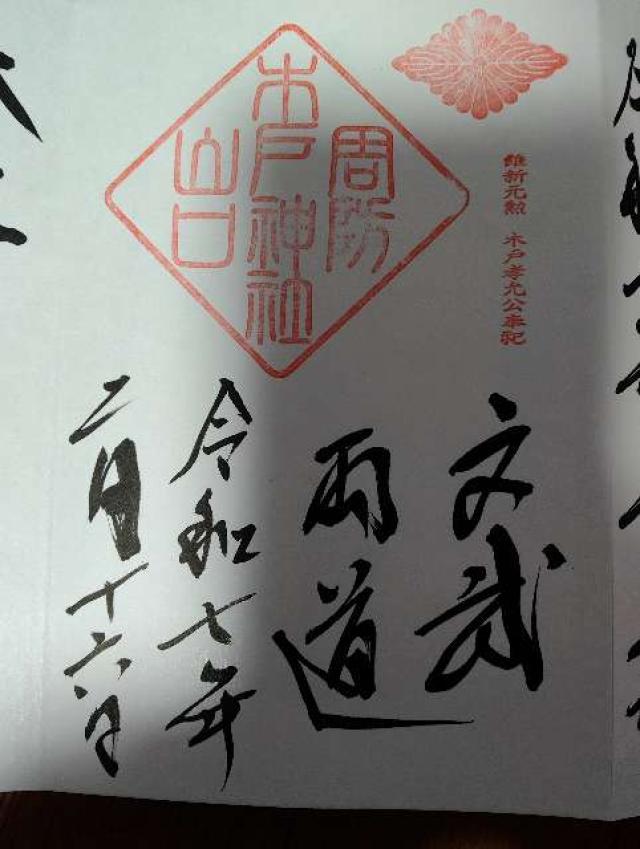 維新元勲 木戸孝允公奉祀
周防
木戸神社
山口
文武
両道
令和七年
二月十六日